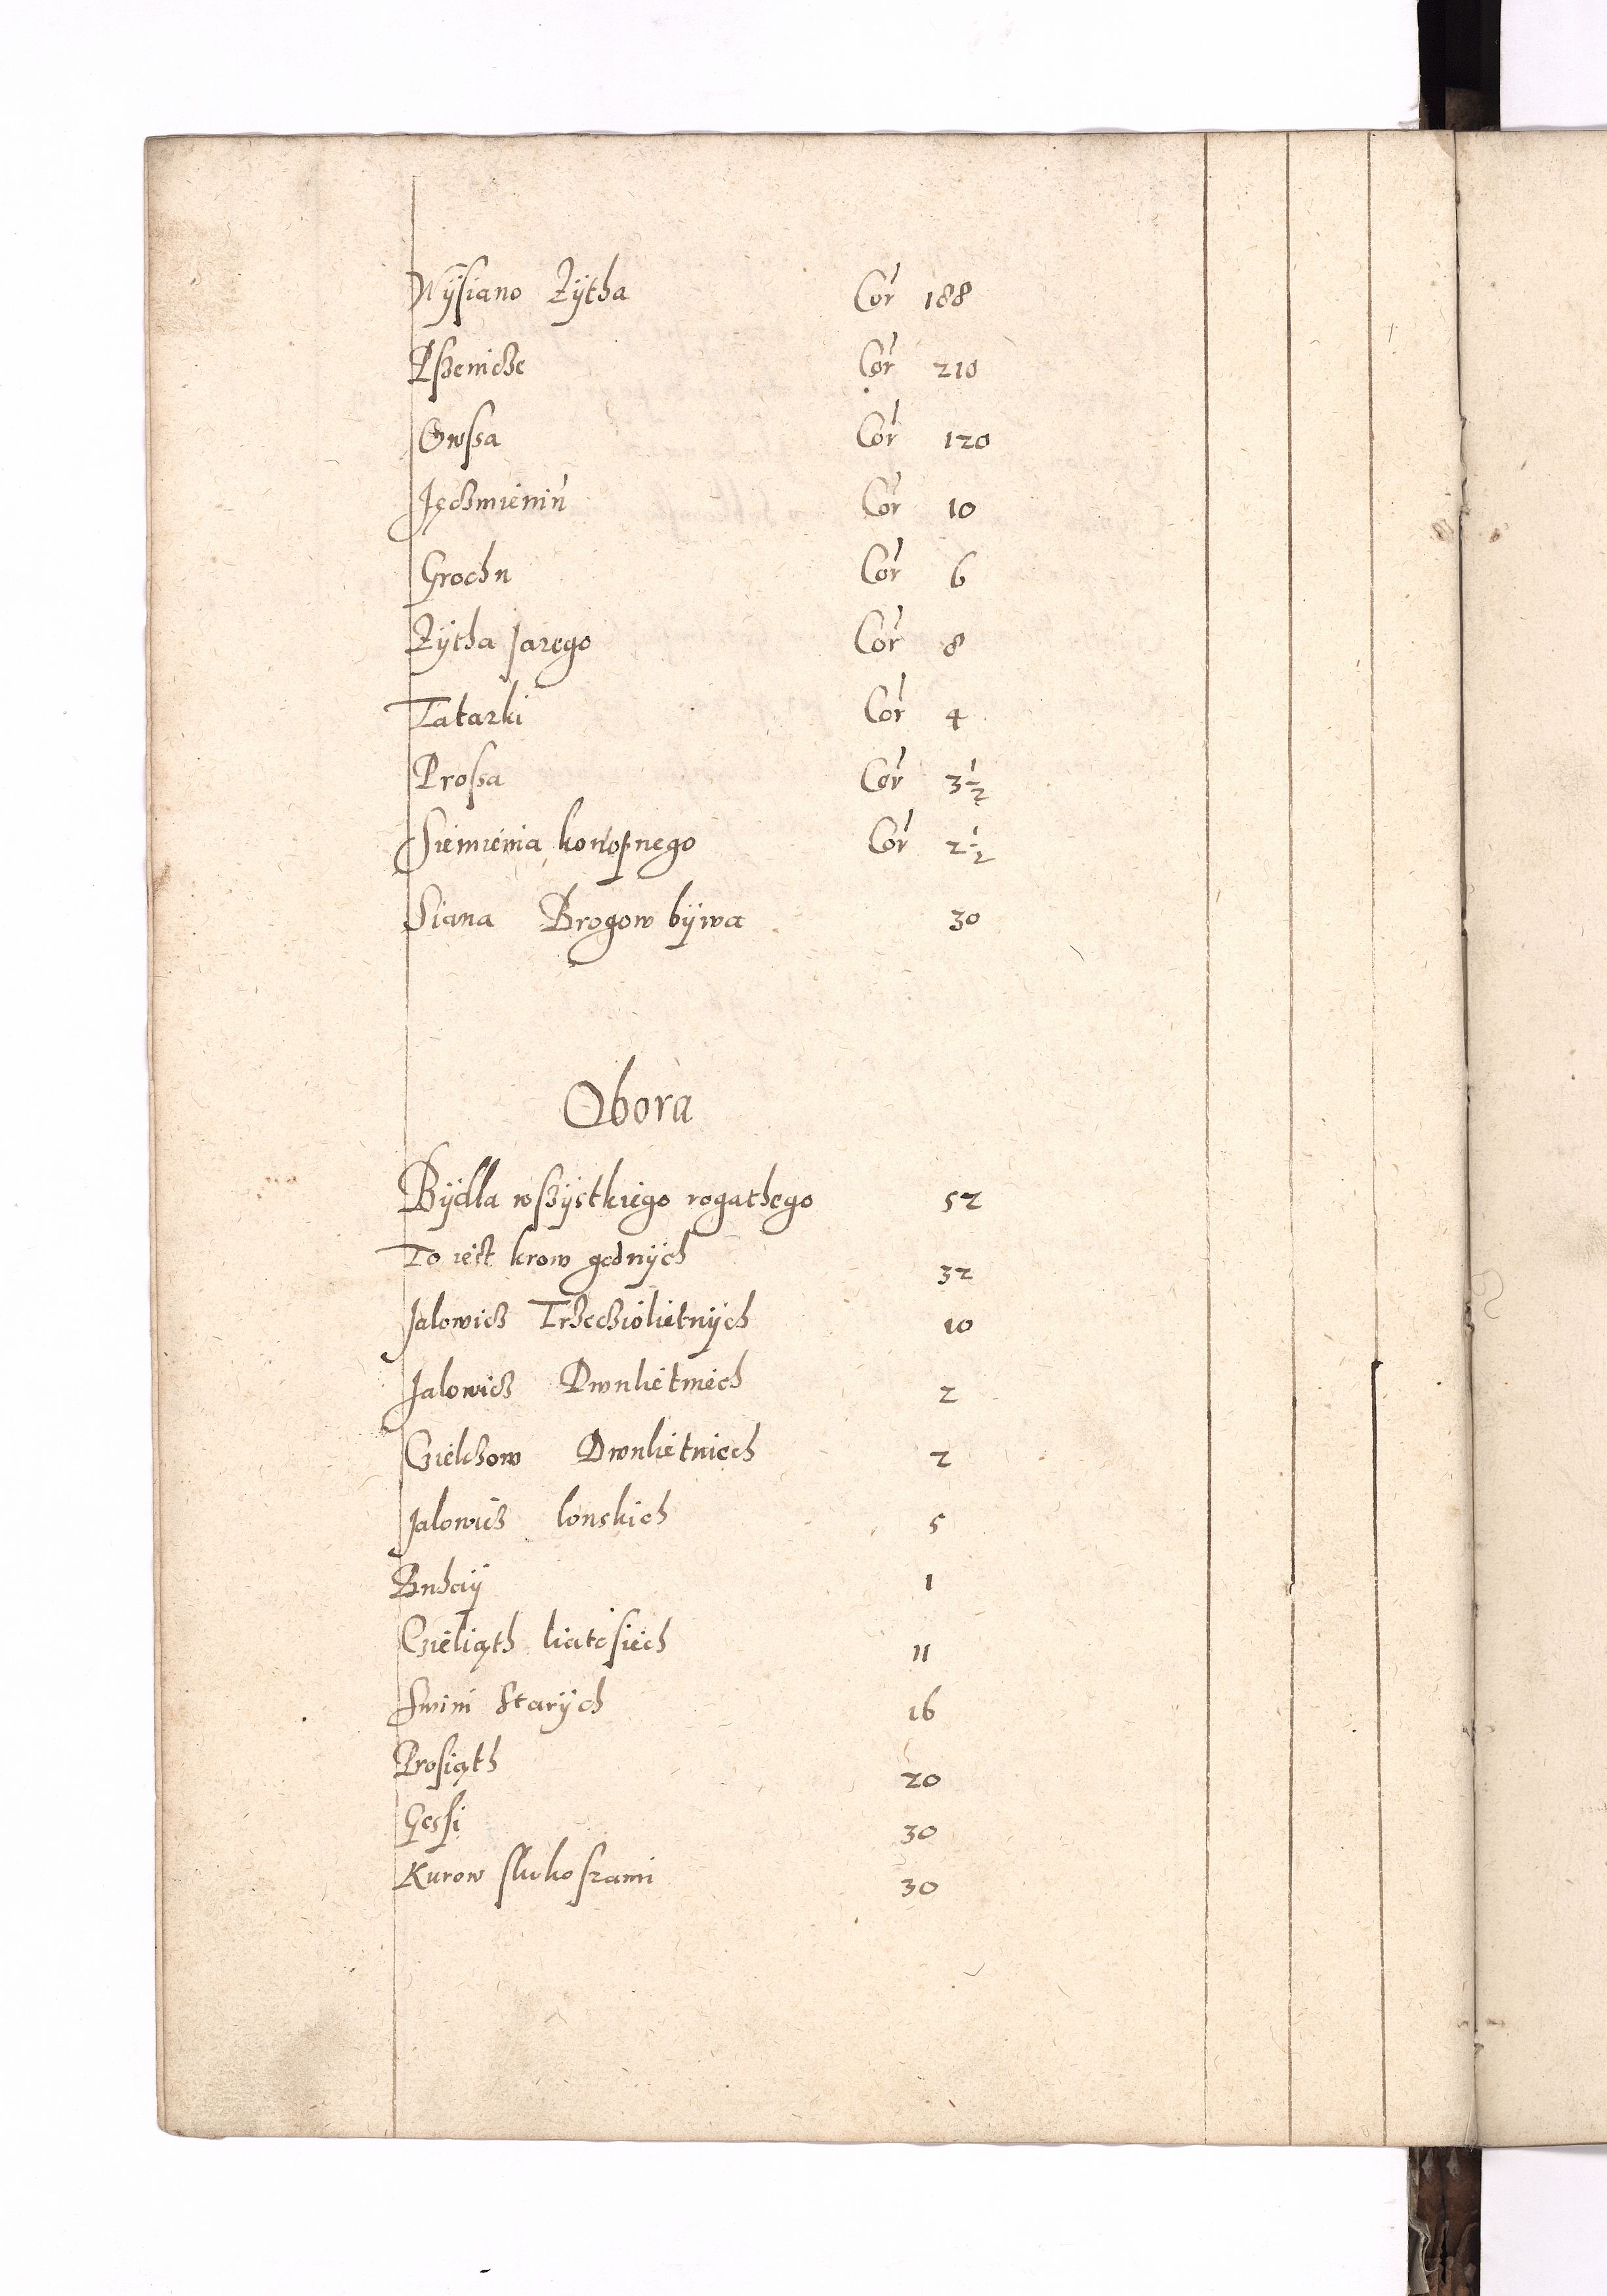 Wÿsiano Zÿtha Cor 188
Pszenicze Cor 210
Owssa Cor 120
Jęczmieniu Cor 10
Grochu Cor 6
Zÿtha Jarego Cor 8
Tatarki Cor 4
Prossa Cor 3 1/2
Siemienia konopnego Cor 2 1/2
Siana Brogow bÿwa 30
Obora
Bÿdla wszÿstkiego rogathego 52
To iest krow godnÿch 32
Jalowicz Trzecziolietnÿch 10
Jalowicz Dwulietniech 2
Czielczow Dwulietniech 2
Jalowicz lonskich 5
Buhaÿ 1
Czieliąth liatosiech 11
Swini starÿch 16
Prosiąth 20
Gęssi 30
Kurow skokoszami 30